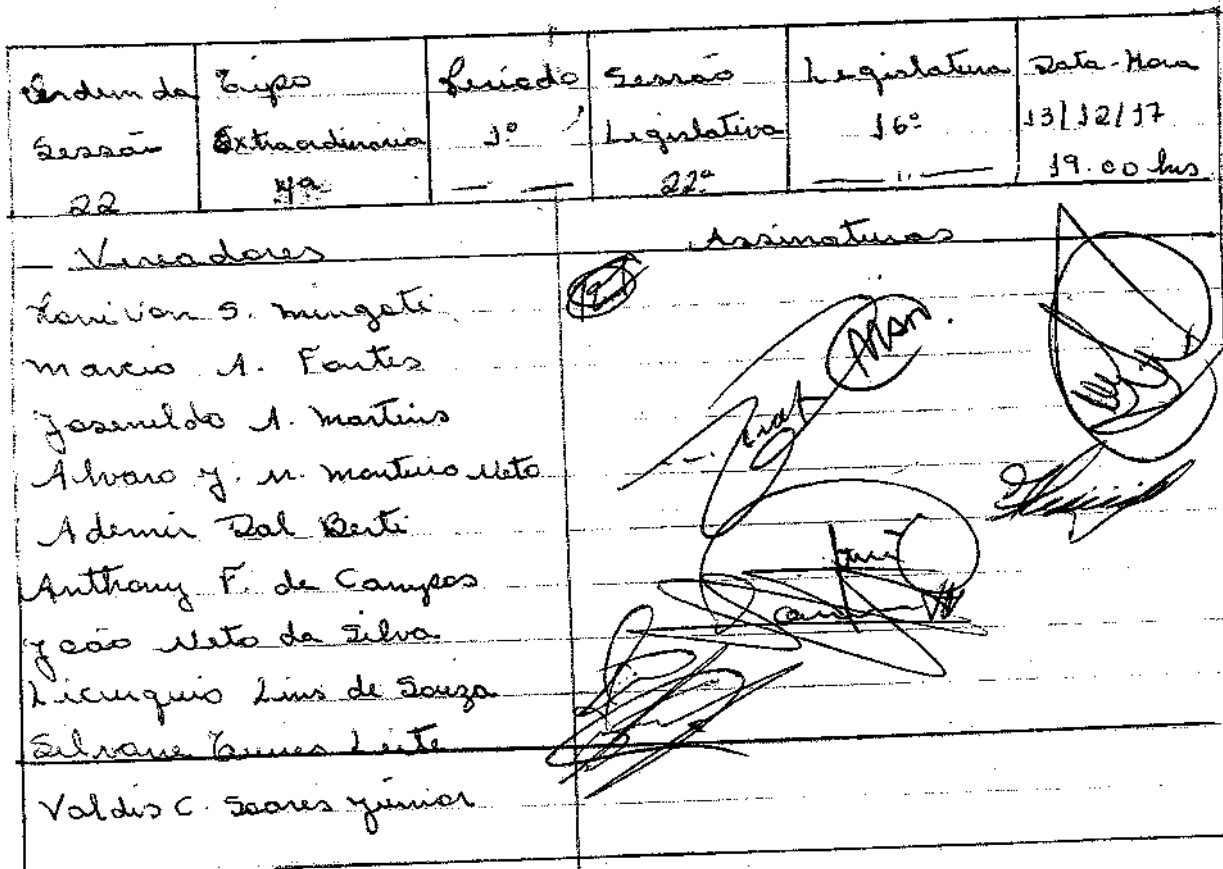 Ordem da Sessão 22
Tipo Extraordinaria 4ª
Período 1º
Sessão Legislativa 22ª
Legislatura 16º
Data-Hora 13/12/17 19.00 hrs
Vereadores
Assinaturas
S. Mingoti
Marcio A. Fontes
Josenildo A. Martins
Alvaro J. M. Monteiro Neto
Ademir Dal Berti
Anthony F. de Campos
João Neto da Silva
Licurguio Lins de Souza
Silvane Leite
Valdis C. Soares Júnior